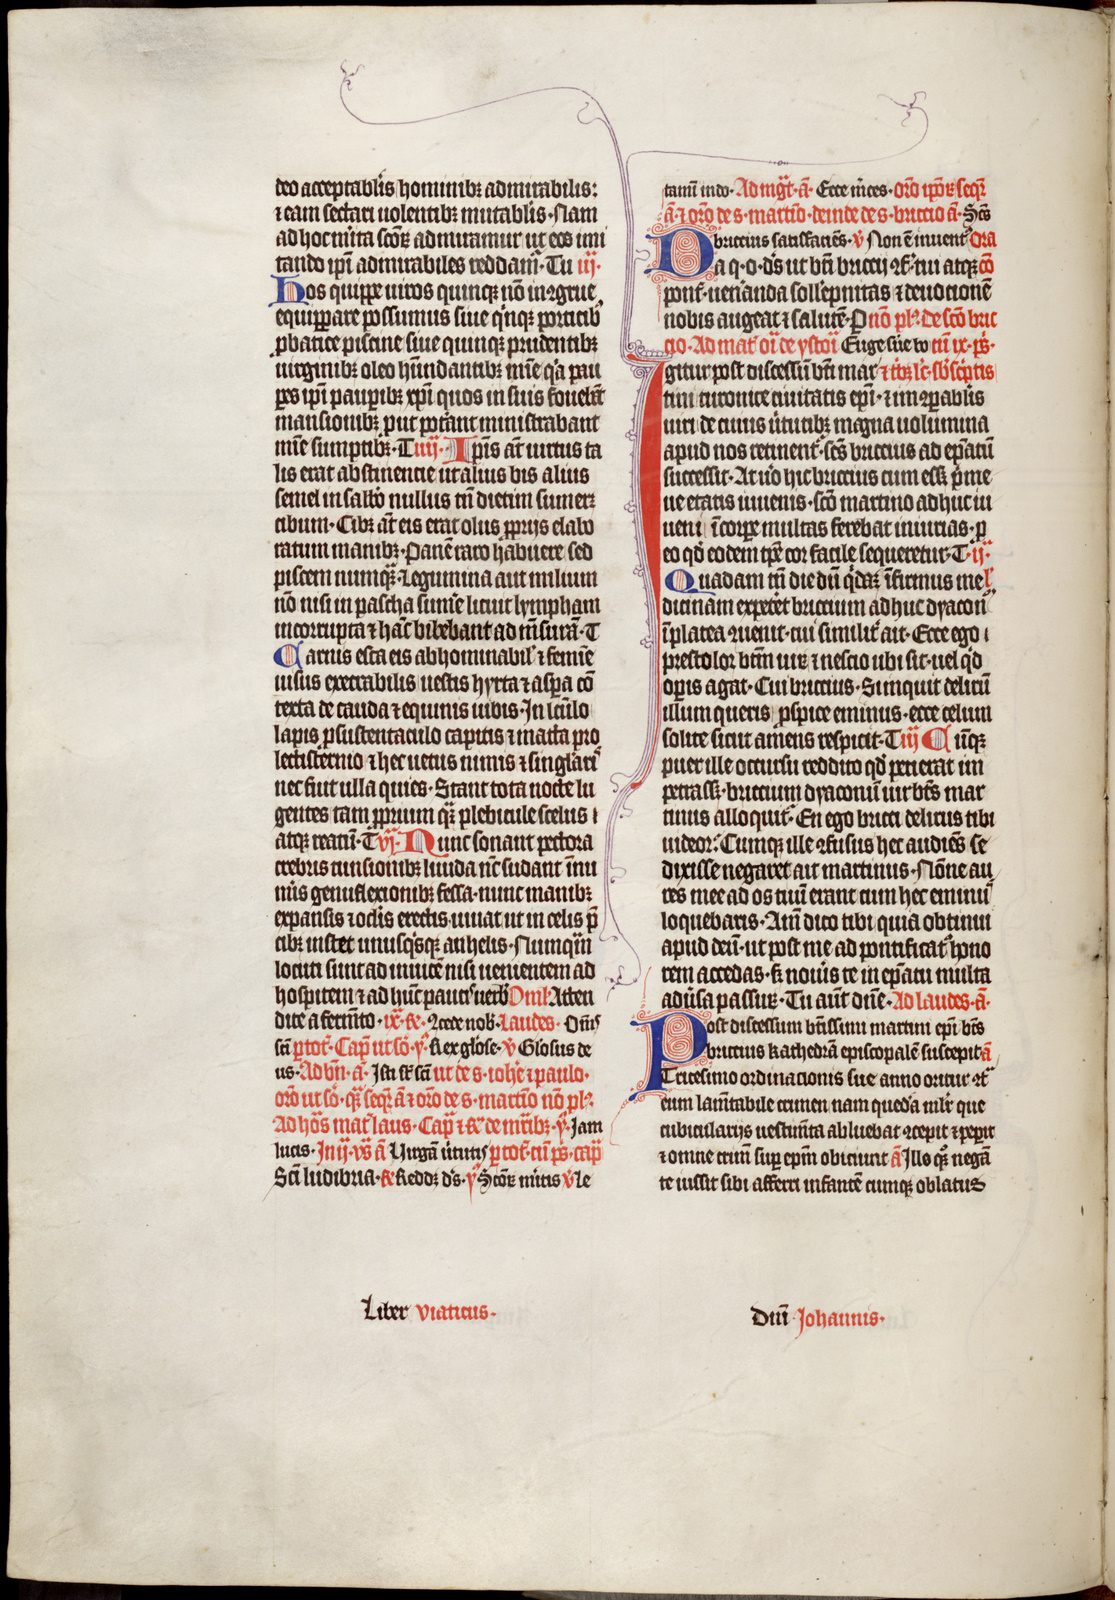 deo acceptabl̄is hominibꝫ admirabilis:
⁊ eam sectari uolentibꝫ imitabl̄is· Nam
ad hoc mīta sc̄oꝝ admiramur ut eos imi
tando ip̄i admirabiles reddam̄· Tu iij·
Hos quippe uiros quinqꝫ nō in ꝯgrue
equippare possumus siue qⁱnqꝫ porticibꝰ
ꝓbatice piscine siue quinqꝫ prudentibꝫ
uirginibꝫ oleo hūndantibꝫ mīe qⁱa pau
ꝑes ip̄i pauꝑibꝫ xp̄i quos in suis fouebāt
mansionibꝫ put poterant ministrabant
mīe sumptibꝫ· T iiij· Ip̄is at̄ uirtus ta
lis erat abstinencie ut alius bis alius
semel in sabbo nullus tn̄ dietim sumeret
cibum· Cibꝫ at̄ eis erat olus ꝓprijs elabo
ratum manibꝫ· Panē raro habuere sed
piscem numqꝫ· Legumina aut milium
nō nisi in pascha sumē licuit lympham
incorrupta ⁊ hāc bibebant ad mēsurā· T
Carius esca eis abhominabil̄ ⁊ femīe
uisus execrabilis uestis hyrta ⁊ aspa cō
texta de cauda ⁊ equinis iubis· In lc̄ulo
lapis ꝓ sustentaculo capitis ⁊ matta pro
lectisternio ⁊ hec uetus nimis ⁊ singlāri
nec fiut ulla quies· Stant tota nocte lu
gentes tam ꝓprium qꝫ plebicule scelus ⁊
atqꝫ reatū· T vj· Nunc sonant pectora
crebris tunsionibꝫ liuida nc̄ sudant īnu
mīs genuflexionibꝫ fessa· nunc manibꝫ
expansis ⁊ oclis erectis· uiuat ut in celis p̄
cibꝫ instet unusqⁱsqꝫ anhelis· Numqⁱn
locuti sunt ad inuicē nisi uenientem ad
hospitem ⁊ ad hūc paucis uerbis Oml· Atten
dite a fermēto· ix· ꝶ· Ecce nob· Laudes· Om̄s
sc̄i per tot· Cap̄ ut s͛· ỹ· Rex glōse· ꝟ Glosus de
us· Ad bn̄· ā· Isti st̄ sc̄i ut de s· iohē ⁊ paulo·
oro ut s͛· qꝫ seqr ā ⁊ oro de s· martīo nō pl̄·
Ad hōs mat laus· Cap̄ ⁊ ꝶ de mr̄ibꝫ· ỹ· Iam
lucis· In ij· vs ā Virgā ūtutis per tot· cū ps̄· cap̄
Sc̄i ludibria· ꝶ Reddꝫ ds̄· ỹ Sc̄oꝝ mītis ꝟ Le
tam̄ in do· Ad mg̃t· ā· Ecce m̄ces· oro ip̄oꝝ seqr
ā ⁊ oro de s· martīo· deinde de s· briccio ā· Sc̄s
briccius satisfaciēs· ꝟ Non ē inuent Ora
Da q· o· ds̄ ut bt̄i briccij ꝯf· tui atqꝫ cō
ponf· ueñanda sollēpnitas ⁊ deuocionē
nobis augeat ⁊ salutē· P nō pl̄· De sc̄o bric
cio· Ad mat oīa de ystoⁱ Euge sue to cū ix· ps̄·
Igitur post discessū bt̄i mar ⁊ tbꝫ lc̄· sb̄sc̄ptis
tini turonice ciuitatis ep̄i· ⁊ in ꝯparabl̄is
uiri de cuius ūtutibꝫ magna uolumina
apud nos retinent· sc̄s briccius ad ep̄atū
successit· At uº hic briccius cum esset pⁱme
ue etatis iuuenis· sc̄o martino adhuc iu
ueni īcorꝑe multas ferebat iniurias· ꝑ
eo qd̄ eodem tꝑe cor facile sequeretur· T· ij·
Quadam tn̄ die dū qⁱdaꝫ īfirmus me
dicinam expetet briccium adhuc dyacon
ī platea ꝯuenit· cui similit̄ ait· Ecce ego ⁊
prestolor btm̄ uiꝝ ⁊ nescio ubi sit· uel qⁱd
oꝑis agat· Cui briccius· Si inquit delicū
illum queris ꝓspice eminus· ecce celum
solite sicut amens respicit· T iij Cūqꝫ
puer ille occursu reddito qd̄ petierat im
petrasset· briccium dyaconū uir bt̄s mar
tinus alloquit· En ego bricci delicus tibi
uideor· Cumqꝫ ille ꝯfusus hec audiēs se
dixisse negaret ait martinus· Nōne au
res mee ad os tuū erant cum hec eminꝰ
loquebaris· Am̄ dico tibi quia obtinui
apud deū· ut post me ad pontificatꝰ hono
rem accedas· sꝫ noūis te in ep̄atu multa
adūsa passuꝝ· Tu aut̄ dn̄e· Ad laudes· ā·
Post discessum bt̄issimi martini ep̄i bt̄s
briccius kathedrā episcopalē suscepit ā
Tricesimo ordinacionis sue anno oritur ꝯt
eum lam̄tabile crimen nam queda mlr̄ que
cubicularijs uestim̄ta abluebat ꝯcepit ⁊ peperit
⁊ omne crimē suꝑ ep̄m obiciunt ā Illo qꝫ negā
te iussit sibi afferri infantē cumqꝫ oblatus
Liber viaticus·
Dnī Johannis·